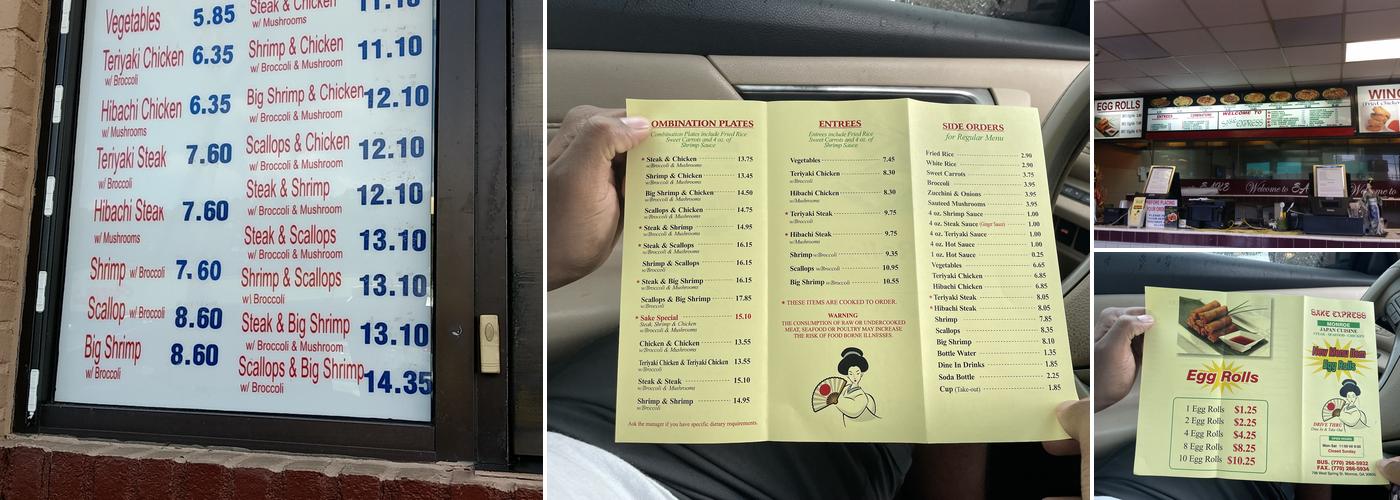 Steak & Chicken 11.10
w/ Mushrooms
Vegetables 5.85
Shrimp & Chicken 11.10
w/ Broccoli & Mushroom
Teriyaki Chicken 6.35
w/ Broccoli
Big Shrimp & Chicken 12.10
w/ Broccoli & Mushroom
Hibachi Chicken 6.35
w/ Mushrooms
Scallops & Chicken 12.10
w/ Broccoli & Mushroom
Teriyaki Steak 7.60
w/ Broccoli
Steak & Shrimp 12.10
w/ Broccoli & Mushroom
Hibachi Steak 7.60
w/ Mushrooms
Steak & Scallops 13.10
w/ Broccoli & Mushroom
Shrimp w/ Broccoli 7.60
Shrimp & Scallops 13.10
w/ Broccoli
Scallop w/ Broccoli 8.60
Steak & Big Shrimp 13.10
w/ Broccoli & Mushroom
Big Shrimp 8.60
w/ Broccoli
Scallops & Big Shrimp 14.35
w/ Broccoli
OMBINATION PLATES
Combination Plates include Fried Rice
Sweet Carrots and 4 oz. of
Shrimp Sauce
* Steak & Chicken 13.75
w/Broccoli & Mushrooms
Shrimp & Chicken 13.45
w/Broccoli & Mushrooms
Big Shrimp & Chicken 14.50
w/Broccoli & Mushrooms
Scallops & Chicken 14.75
w/Broccoli & Mushrooms
* Steak & Shrimp 14.95
w/Broccoli & Mushrooms
* Steak & Scallops 16.15
w/Broccoli
Shrimp & Scallops 16.15
w/Broccoli
* Steak & Big Shrimp 16.15
w/Broccoli & Mushrooms
Scallops & Big Shrimp 17.85
w/Broccoli
* Sake Special 15.10
Steak, Shrimp & Chicken
w/Broccoli & Mushrooms
Chicken & Chicken 13.55
w/Broccoli & Mushrooms
Teriyaki Chicken & Teriyaki Chicken 13.55
w/Broccoli & Mushrooms
Steak & Steak 15.10
w/Broccoli & Mushrooms
Shrimp & Shrimp 14.95
w/Broccoli
Ask the manager if you have specific dietary requirements.
ENTREES
Entrees include Fried Rice
Sweet Carrots and 4 oz. of
Shrimp Sauce
Vegetables 7.45
Teriyaki Chicken 8.30
w/Broccoli
Hibachi Chicken 8.30
w/Mushrooms
* Teriyaki Steak 9.75
w/Broccoli
* Hibachi Steak 9.75
w/Mushrooms
Shrimp w/Broccoli 9.35
Scallops w/Broccoli 10.95
Big Shrimp w/Broccoli 10.55
* THESE ITEMS ARE COOKED TO ORDER.
WARNING
THE CONSUMPTION OF RAW OR UNDERCOOKED
MEAT, SEAFOOD OR POULTRY MAY INCREASE
THE RISK OF FOOD BORNE ILLNESSES.
SIDE ORDERS
for Regular Menu
Fried Rice 2.90
White Rice 2.90
Sweet Carrots 3.75
Broccoli 3.95
Zucchini & Onions 3.95
Sauteed Mushrooms 3.95
4 oz. Shrimp Sauce 1.00
4 oz. Steak Sauce (Ginger Sauce) 1.00
4 oz. Teriyaki Sauce 1.00
4 oz. Hot Sauce 1.00
1 oz. Hot Sauce 0.25
Vegetables 6.65
Teriyaki Chicken 6.85
Hibachi Chicken 6.85
* Teriyaki Steak 8.05
* Hibachi Steak 8.05
Shrimp 7.85
Scallops 8.35
Big Shrimp 8.10
Bottle Water 1.35
Dine In Drinks 1.85
Soda Bottle 2.25
Cup (Take-out) 1.85
EGG ROLLS
ENTREES
COMBINATIONS
WELCOME TO
SAKE EXPRESS
WING
(Fried Chicke
Welcome to SA
BEFORE PLACING
YOUR ORDER
Egg Rolls
1 Egg Rolls $1.25
2 Egg Rolls $2.25
4 Egg Rolls $4.25
8 Egg Rolls $8.25
10 Egg Rolls $10.25
SAKE EXPRESS
MONROE
JAPAN CUISINE
STEAK - SEAFOOD - CHICKEN
New Menu Item
Egg Rolls
DRIVE THRU
Dine In & Take Out
OPEN HOURS
Mon-Sat 11:00
Closed Sunday
BUS. (770) 266-5932
FAX. (770) 266-5934
706 West Spring St. Monroe, GA